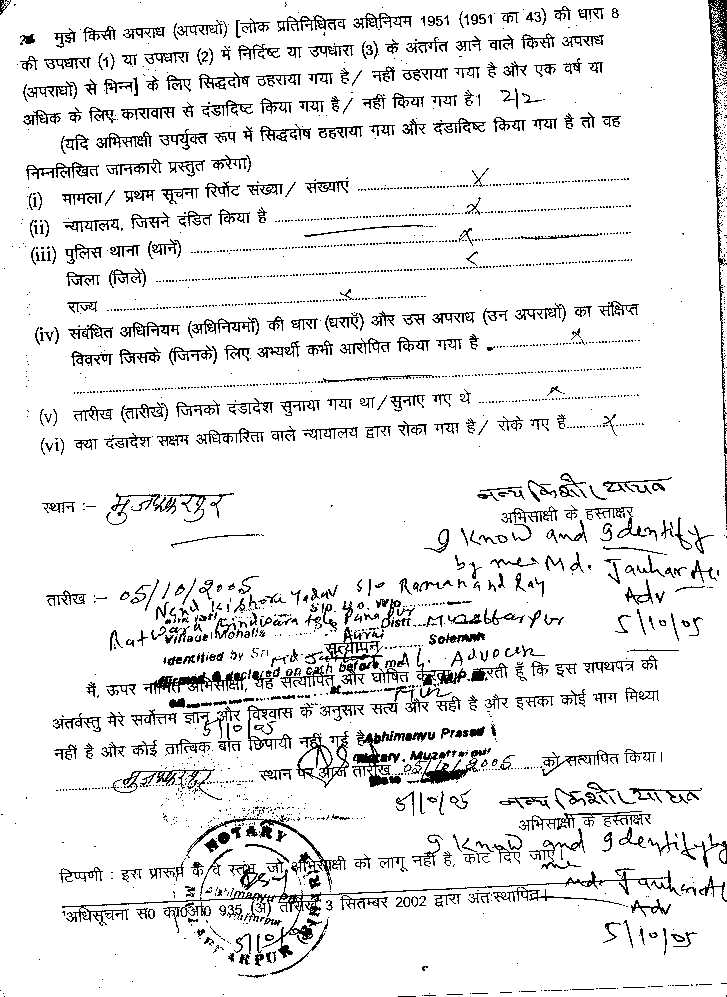 2. मुझे किसी अपराध (अपराधों) [लोक प्रतिनिधितव अधिनियम 1951 (1951 का 43) की धारा 8
की उपधारा (1) या उपधारा (2) में निर्दिष्ट या उपधारा (3) के अंतर्गत आने वाले किसी अपराध
(अपराधों) से भिन्न] के लिए सिद्धदोष ठहराया गया है/ नहीं ठहराया गया है और एक वर्ष या
अधिक के लिए कारावास से दंडादिष्ट किया गया है/ नहीं किया गया है। 2/2
(यदि अभिसाक्षी उपर्युक्त रूप में सिद्धदोष ठहराया गया और दंडादिष्ट किया गया है तो वह
निम्नलिखित जानकारी प्रस्तुत करेगा)
(i) मामला/ प्रथम सूचना रिर्पोट संख्या/ संख्याएं ........ X
(ii) न्यायालय, जिसने दंडित किया है ........ X
(iii) पुलिस थाना (थानें) ........ X
जिला (जिले) ........ X
राज्य ........ X
(iv) संबंधित अधिनियम (अधिनियमों) की धारा (धराएँ) और उस अपराध (उन अपराधों) का संक्षिप्त
विवरण जिसके (जिनके) लिए अभ्यर्थी कभी आरोपित किया गया है ........ X
(v) तारीख (तारीखें) जिनको दंडादेश सुनाया गया था/ सुनाए गए थे ........ X
(vi) क्या दंडादेश सक्षम अधिकारिता वाले न्यायालय द्वारा रोका गया है/ रोके गए हैं ........ X
स्थान :- मुजफ्फरपुर
नन्दकिशोर यादव
अभिसाक्षी के हस्ताक्षर
I Know and Identify
by me Md. Jauhar Ali
Adv
5/10/05
तारीख :- 05/10/2005
Nand Kishore Yadav S/o Ramanand Ray
Ratwara Bindwara
Village/Mohalla Aurai Disti Muzaffarpur
Solemnn
सत्यापन
Identified by Sri Md Advocate
affirmed & declared on oath before me
मैं, ऊपर नामित अभिसाक्षी, यह सत्यापित और घोषित करता/करती हूँ कि इस शपथपत्र की
अंतर्वस्तु मेरे सर्वोत्तम ज्ञान और विश्वास के अनुसार सत्य और सही है और इसका कोई भाग मिथ्या
5/10/05
नहीं है और कोई तात्विक बात छिपायी नहीं गई है।
Abhimanyu Prasad
Notary, Muzaffarpur
मुजफ्फरपुर स्थान पर आज तारीख 05/10/2005 को सत्यापित किया।
Date
5/10/05
नन्दकिशोर यादव
अभिसाक्षी के हस्ताक्षर
I Know and Identify by
me
Md. Jauhar Ali
Adv
5/10/05
टिप्पणी : इस प्रारूप के वे स्तंभ, जो अभिसाक्षी को लागू नहीं है, काट दिए जाएं।
अधिसूचना स0 का0आ0 935 (अ) तारीख 3 सितम्बर 2002 द्वारा अंतःस्थापित।
NOTARY
Abhimanyu
MUZAFFARPUR (BIHAR)
5/10/05